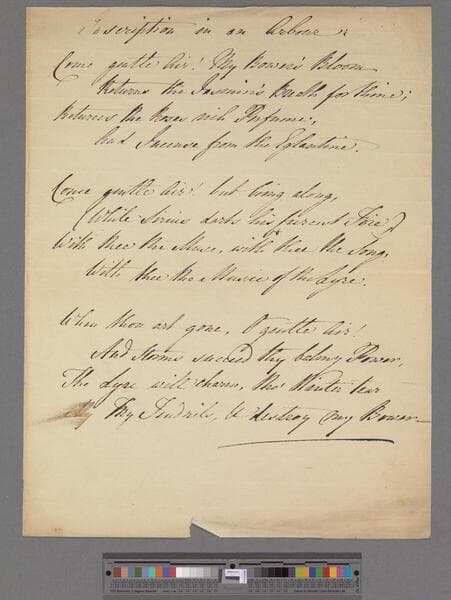 Inscription in an Arbour
Come gentle Air! My Bower's Bloom
Returns the Jasmin's Breath for thine;
Returns the Roses rich Perfume,
And Incense from the Eglantine.
Come gentle Air! but bring along,
(While Sirius darts his fervent Fire)
With thee the Muse, with thee the Song,
With thee the Music of the Lyre.
When thou art gone, O gentle Air!
And storms succeed thy balmy Power,
The Lyre will charm, tho' Winter tear
My Tendrils, & destroy my Bower